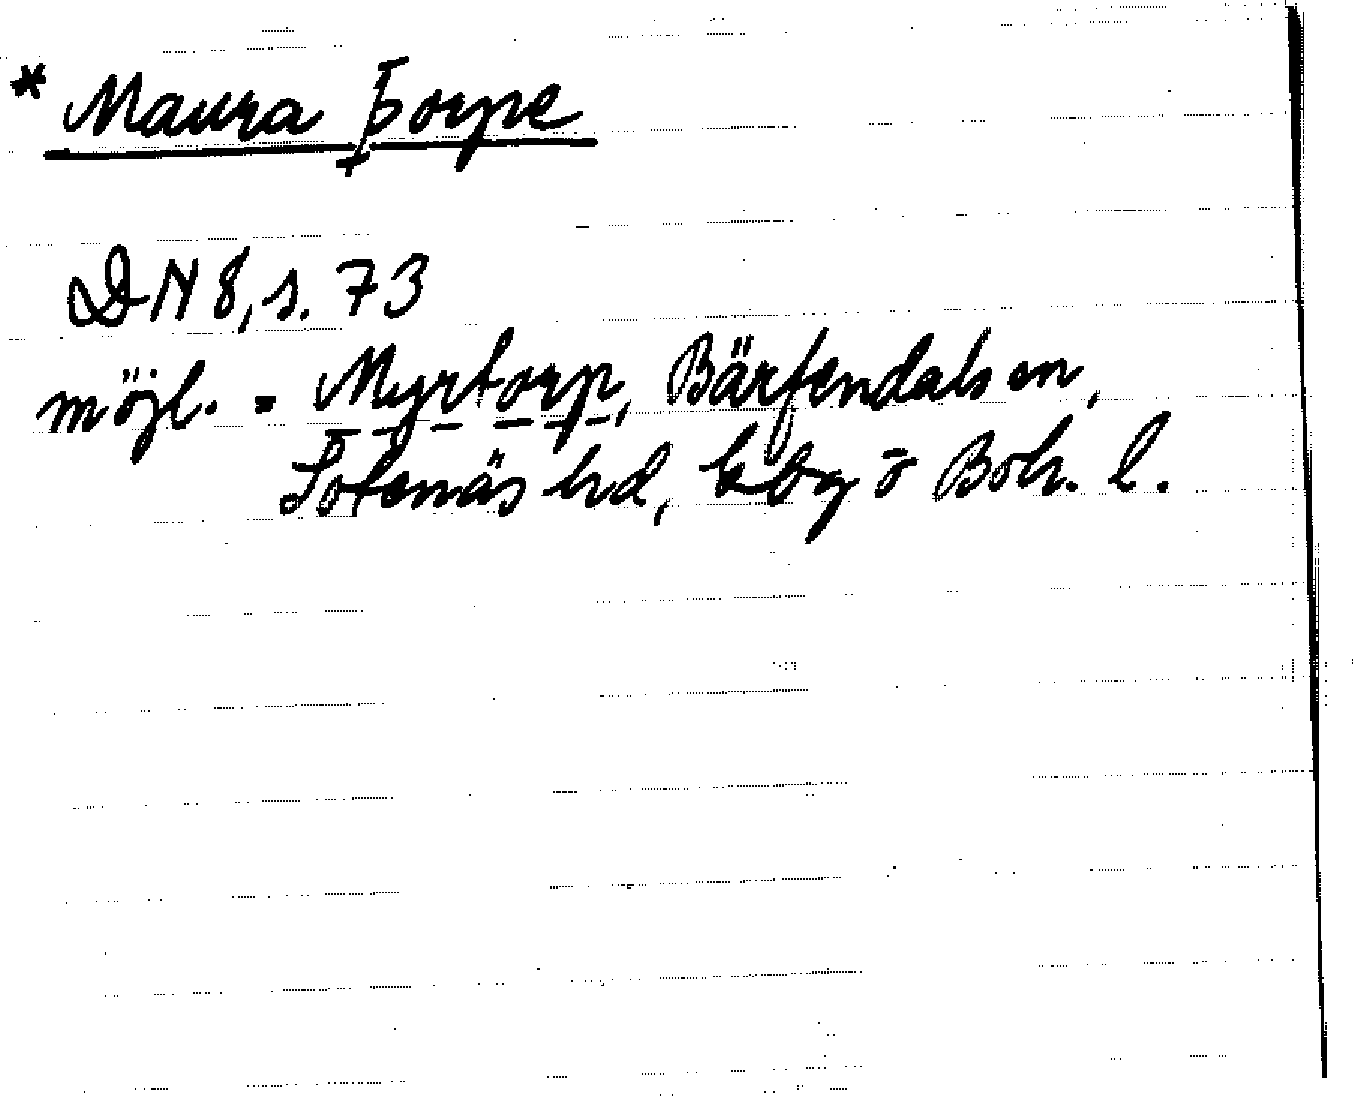 * Maura Þorpe
DN 8, s. 73
möjl. = Myrtorp, Bärfendals sn,
Sotenäs hd, Gbg o Boh. l.